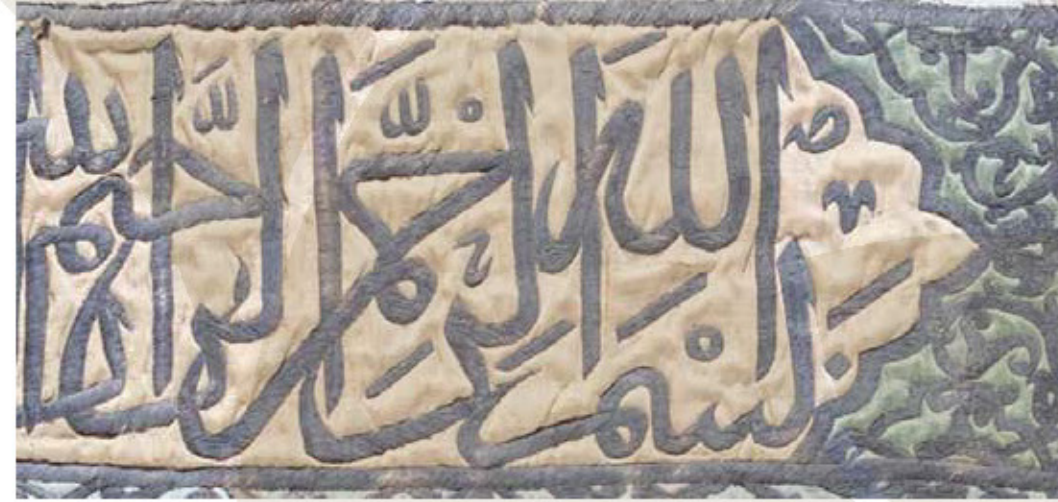 بسم الله الرحمن الرحيم الله